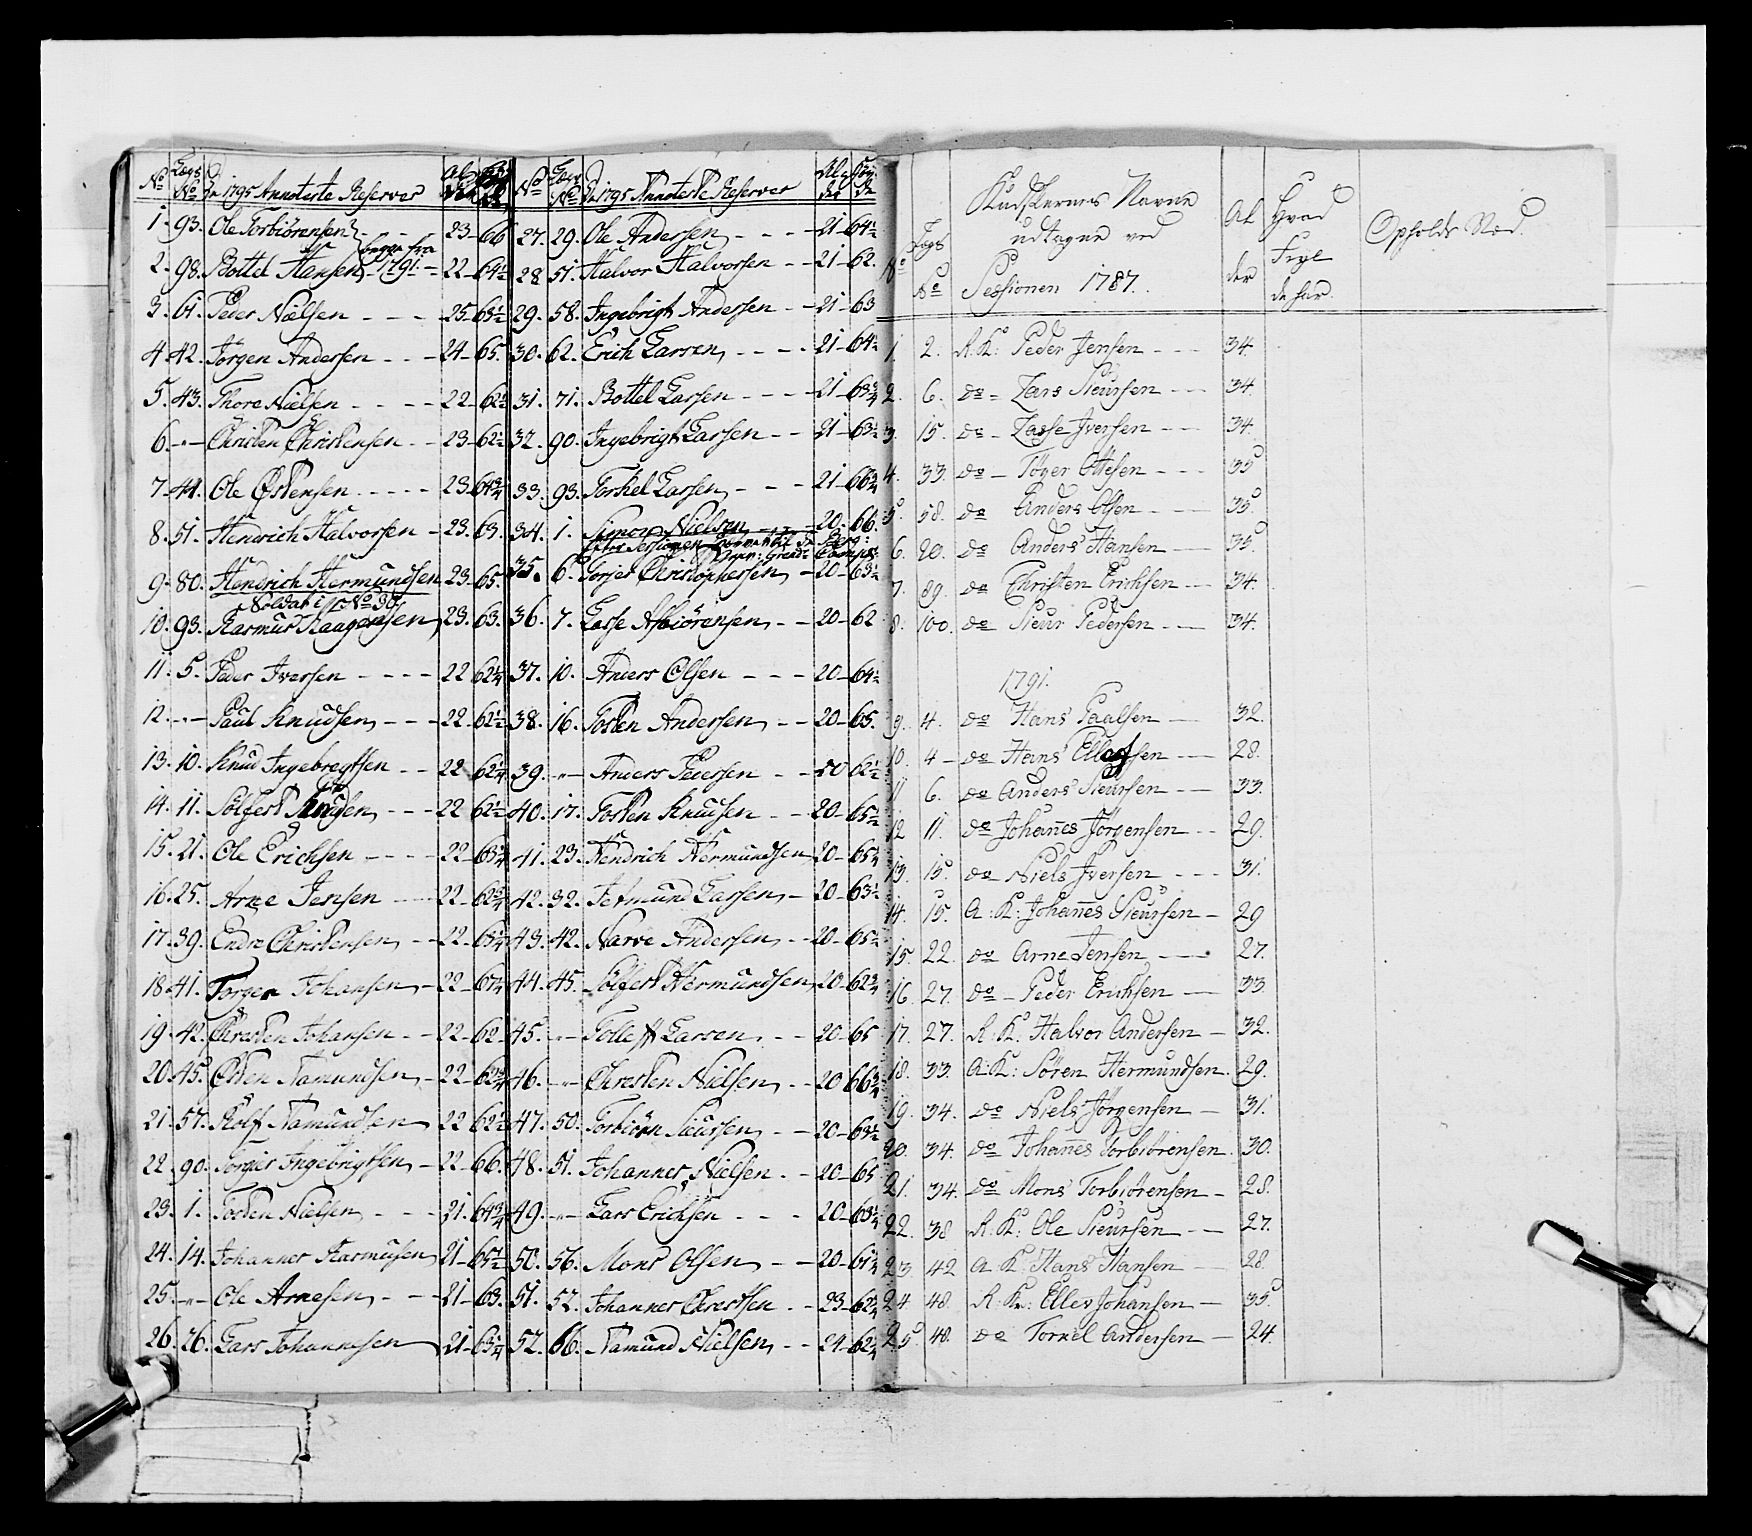 No Lægs No De 1795 Annoterte Reserver Al der
1. 93. Ole Torbiörensen - - 23 - 66
begge fra
2. 98. Bottel Hansen - 1791 - 22 - 64½
3. 61. Peder Nielsen - - - 25 - 63½
4. 42. Jörgen Andersen - - - 24 - 65.
5. 43. Thore Nielsen - - - - 22 - 62½
6. -"- Christen Christensen - - 23 - 62½
7. 41. Ole Østensen - - - - - 23 - 64¾
8. 51. Hendrich Halvorsen - 23. 63.
9. 80. Hendrich Hermundsen 23 - 65.
Soldat i No 30
10. 93. Rasmus Raagensen 23. 63.
11. 5. Peder Iversen - - - - 22 62¼
12. -"- Paul Knudsen - - - 22 - 62½
13. 10. Knud Ingebregtsen - - 22 62¼
14. 11. Solfest Knudsen - - - 22 62½
15. 21. Ole Erichsen - - - - 22 - 63¼
16. 25. Arne Jensen - - - 22 - 62¾
17. 39. Endre Christensen - - 22 - 63¼
18. 41. Torger Johansen - 22 - 67¼
19. 42. Christen Johansen - - 22 - 62
20. 45. Østen Namundsen - 22 - 62¾
21. 57. Rolf Namundsen 22 62½
22. 90. Torgier Ingebrigtsen - 22 - 66.
23. 1. Tosten Nielsen - - - 21. 64¾
24. 14. Johannes Rasmusen 21 - 65½
25. -"- Ole Arnesen - - - 21 - 63.
26. 26. Lars Johannesen 21 63¼
No Lægs No De 1795 Annoterte Reserver Al der
27. 29. Ole Andersen - - - - 21 - 64½
28 51. Halvor Halvorsen - - 21 - 62.
29. 58. Ingebrigt Andersen - - 21 - 63
30. 62. Erich Larsen - - - - 21 - 64½
31. 71. Bottel Larsen - - - - 21 - 63¾
32. 90. Ingebrigt Larsen - - 21 - 63½
33. 93. Torkel Larsen - - - 21 - 66¾
34. 1. Simon Nielsen - - - 20. 66.
35. 6. Torjer Christophersen - 20 - 63½
36. 7. Lasse Asbiörensen - - 20 - 62
37. 10. Anders Olsen - - - 20 - 64½
38. 16. Tosten Andersen - - 20 - 65.
39. -"- Anders Pedersen - - 20 62½
40. 17. Tosten Knudsen - - 20 - 65½
41. 23. Hendrich Hermundsen 20 - 65¼
42. 32. Jetmund Larsen - 20 - 63½
43. 42. Narve Andersen - - 20 - 65½
44. 45. Solfest Hermundsen 20 - 62¾
45. -"- Tollef Larsen - - 20 - 65
46. -"- Christen Nielsen - - 20 66¾
47. 50. Torbiörn Siursen - - 20 - 63½
48. 51. Johannes Nielsen - - 20 - 65
49. -"- Lars Erichsen - - - 20 - 63¼
50. 56. Mons Olsen - - 20 - 61¼
51. 57. Johannes Christsen - - 23 - 62¾
52. 66. Namund Nielsen - - 24 - 62¼
No Lægs No Kudskernes Navne udtagne ved Sessionen 1787. Al der Hvad Frye de har. Opholds Sted.
1. 2. R: K: Peder Jensen - - - 34.
2. 6. do - Lars Siursen - - 34.
3. 15. do - Lasse Iversen - - - 34.
4. 33. do - Töger Ottesen - - - 35
5. 58. do Anders Olsen - - - 35.
6. 20. do Anders Hansen - - 35.
7. 89. do Christen Erichsen - - 34.
8. 100. do Siur Pedersen - - 34.
1791.
9. 4. do Hans Paalsen - - 32.
10. 4 - do Hans Ellefsen - - 28.
11 6. do Anders Siursen - - 33.
12 11. do Johanes Jörgensen - - 29.
13. 15. do Niels Iversen - - - 31.
14. 15. A: K: Johanes Siursen - 29
15 22. do Arne Jensen - - 27.
16 27. do - Peder Erichsen - - 33.
17. 27. R: K: Halvor Andersen - 32.
18. 33. A: K: Sören Hermundsen. 29.
19. 34. do Niels Jörgensen - 31.
20. 34. do Johanes Torbiörensen. 30.
21. 34. do Mons Torbiörensen - 28.
22. 38 R: K: Ole Siursen - - 27.
23. 42 A K: Hans Hansen - - 28.
24. 48. R: K: Ellev Johansen - 35.
25. 48. do Torkel Andersen - 24.